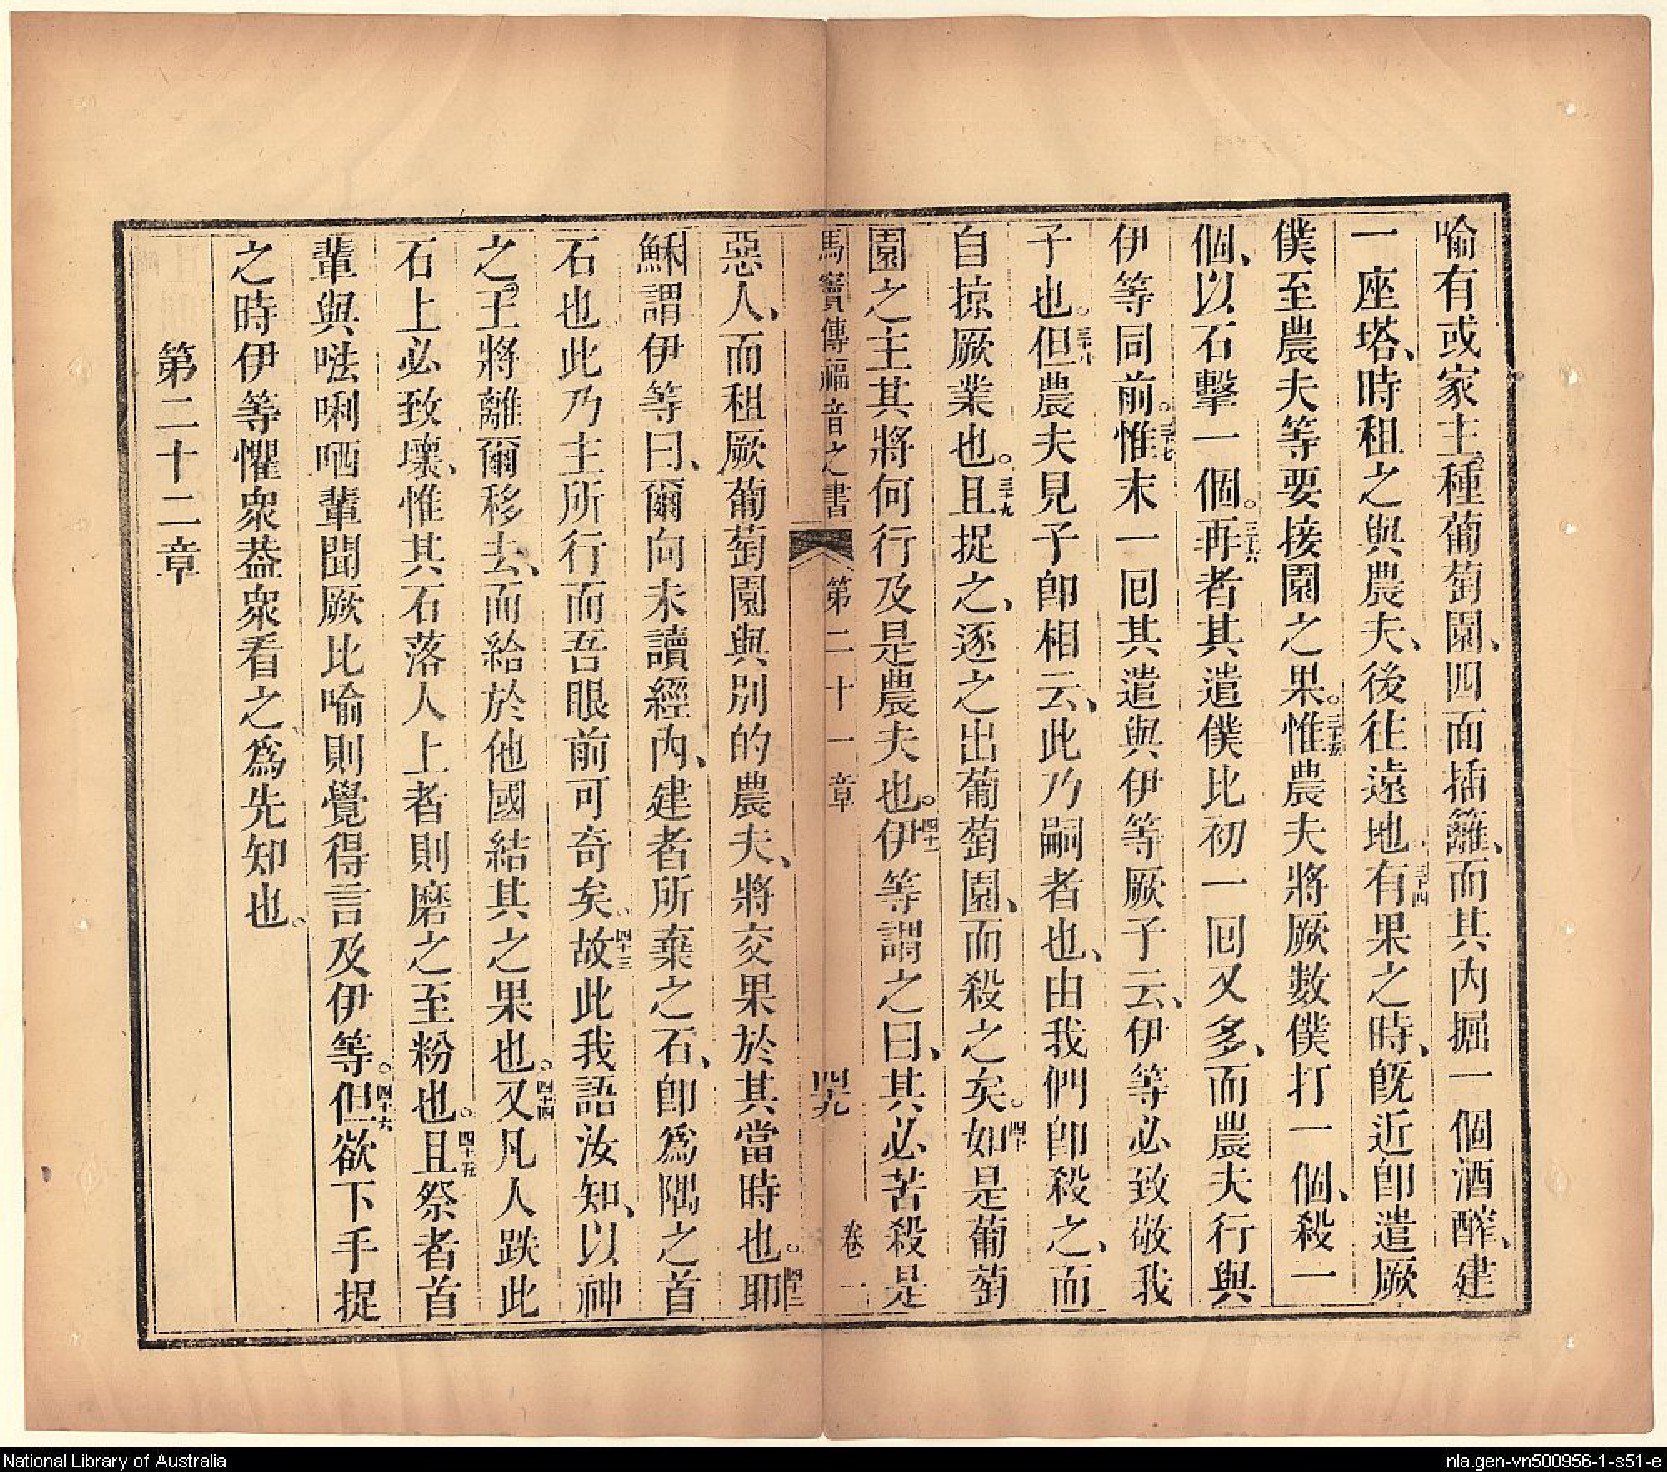 喻有或家主種葡萄園、四面插籬、而其內掘一個酒醡、建
一座塔、時租之與農夫、後往遠地三十四有果之時、旣近卽遣厥
僕至農夫等要接園之果。三十五惟農夫將厥數僕打一個、殺一
個、以石擊一個。三十六再者其遣僕比初一回又多、而農夫行與
伊等同前。三十七惟末一回其遣與伊等厥子云、伊等必致敬我
子也。三十八但農夫見子卽相云、此乃嗣者也、由我們卽殺之、而
自掠厥業也。三十九且捉之、逐之出葡萄園、而殺之矣。四十如是葡萄
園之主其將何行及是農夫也。四十一伊等謂之曰、其必苦殺是
馬竇傳福音之書 第二十一章 四九 卷一
惡人、而租厥葡萄園與別的農夫、將交果於其當時也。四十二耶
穌謂伊等曰、爾向未讀經內、建者所棄之石、卽為隅之首
石也此乃主所行而吾眼前可奇矣、四十三故此我語汝知、以神
之王將離爾移去、而給於他國結其之果也。四十四又凡人跌此
石上必致壞、惟其石落人上者則磨之至粉也。四十五且祭者首
輩與𠵽唎哂輩聞厥比喻則覺得言及伊等。四十六但欲下手捉
之時伊等懼衆葢衆看之、為先知也。
第二十二章
National Library of Australia
nla.gen-vn500956-1-s51-e